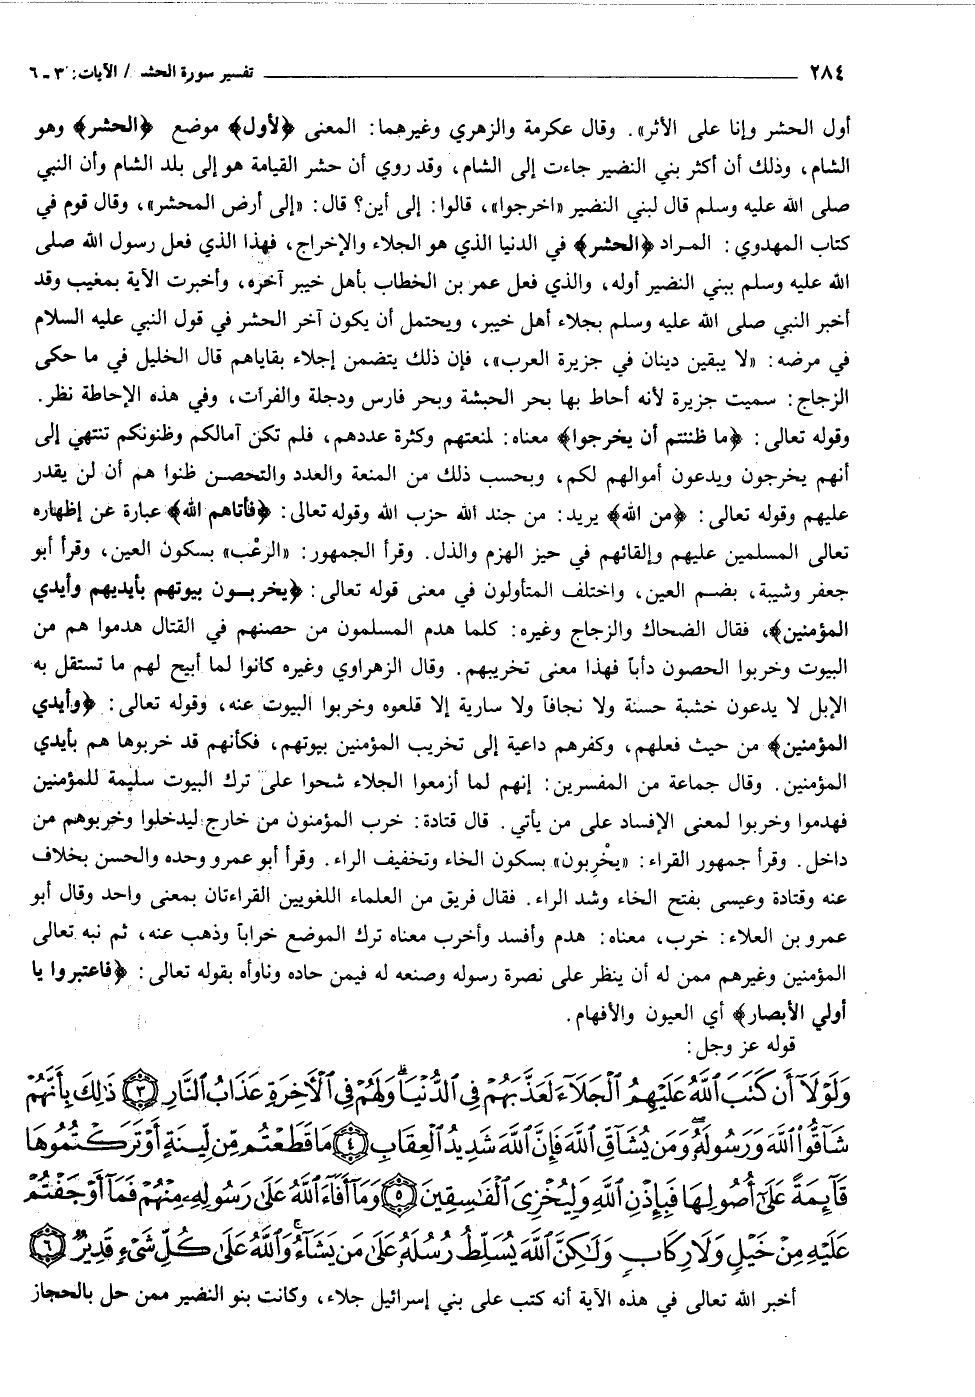 ٢٨٤ تفسير سورة الحشر / الآيات: ٣ ـ ٦
أول الحشر وإنا على الأثر». وقال عكرمة والزهري وغيرهما: المعنى ﴿لأول﴾ موضع ﴿الحشر﴾ وهو
الشام، وذلك أن أكثر بني النضير جاءت إلى الشام، وقد روي أن حشر القيامة هو إلى بلد الشام وأن النبي
صلى الله عليه وسلم قال لبني النضير «اخرجوا»، قالوا: إلى أين؟ قال: «إلى أرض المحشر»، وقال قوم في
كتاب المهدوي: المراد ﴿الحشر﴾ في الدنيا الذي هو الجلاء والإخراج، فهذا الذي فعل رسول الله صلى
الله عليه وسلم ببني النضير أوله، والذي فعل عمر بن الخطاب بأهل خيبر آخره، وأخبرت الآية بمغيب وقد
أخبر النبي صلى الله عليه وسلم بجلاء أهل خيبر، ويحتمل أن يكون آخر الحشر في قول النبي عليه السلام
في مرضه: «لا يبقين دينان في جزيرة العرب»، فإن ذلك يتضمن إجلاء بقاياهم قال الخليل في ما حكى
الزجاج: سميت جزيرة لأنه أحاط بها بحر الحبشة وبحر فارس ودجلة والفرات، وفي هذه الإحاطة نظر.
وقوله تعالى: ﴿ما ظننتم أن يخرجوا﴾ معناه: لمنعتهم وكثرة عددهم، فلم تكن آمالكم وظنونكم تنتهي إلى
أنهم يخرجون ويدعون أموالهم لكم، وبحسب ذلك من المنعة والعدد والتحصن ظنوا هم أن لن يقدر
عليهم وقوله تعالى: ﴿من الله﴾ يريد: من جند الله حزب الله وقوله تعالى: ﴿فأتاهم الله﴾ عبارة عن إظهاره
تعالى المسلمين عليهم وإلقائهم في حيز الهزم والذل. وقرأ الجمهور: «الرعْب» بسكون العين، وقرأ أبو
جعفر وشيبة، بضم العين، واختلف المتأولون في معنى قوله تعالى: ﴿يخربون بيوتهم بأيديهم وأيدي
المؤمنين﴾، فقال الضحاك والزجاج وغيره: كلما هدم المسلمون من حصنهم في القتال هدموا هم من
البيوت وخربوا الحصون دأباً فهذا معنى تخريبهم. وقال الزهراوي وغيره كانوا لما أبيح لهم ما تستقل به
الإبل لا يدعون خشبة حسنة ولا نجافاً ولا سارية إلا قلعوه وخربوا البيوت عنه، وقوله تعالى: ﴿وأيدي
المؤمنين﴾ من حيث فعلهم، وكفرهم داعية إلى تخريب المؤمنين بيوتهم، فكأنهم قد خربوها هم بأيدي
المؤمنين. وقال جماعة من المفسرين: إنهم لما أزمعوا الجلاء شحوا على ترك البيوت سليمة للمؤمنين
فهدموا وخربوا لمعنى الإفساد على من يأتي. قال قتادة: خرب المؤمنون من خارج ليدخلوا وخربوهم من
داخل. وقرأ جمهور القراء: «يخْرِبون» بسكون الخاء وتخفيف الراء. وقرأ أبو عمرو وحده والحسن بخلاف
عنه وقتادة وعيسى بفتح الخاء وشد الراء. فقال فريق من العلماء اللغويين القراءتان بمعنى واحد وقال أبو
عمرو بن العلاء: خرب، معناه: هدم وأفسد وأخرب معناه ترك الموضع خراباً وذهب عنه، ثم نبه تعالى
المؤمنين وغيرهم ممن له أن ينظر على نصرة رسوله وصنعه له فيمن حاده وناوأه بقوله تعالى: ﴿فاعتبروا يا
أولي الأبصار﴾ أي العيون والأفهام.
قوله عز وجل:
وَلَوْلَآ أَن كَتَبَ ٱللَّهُ عَلَيْهِمُ ٱلْجَلَآءَ لَعَذَّبَهُمْ فِى ٱلدُّنْيَا ۖ وَلَهُمْ فِى ٱلْأَخِرَةِ عَذَابُ ٱلنَّارِ ۝٣ ذَٰلِكَ بِأَنَّهُمْ
شَآقُّوا۟ ٱللَّهَ وَرَسُولَهُۥ ۖ وَمَن يُشَآقِّ ٱللَّهَ فَإِنَّ ٱللَّهَ شَدِيدُ ٱلْعِقَابِ ۝٤ مَا قَطَعْتُم مِّن لِّينَةٍ أَوْ تَرَكْتُمُوهَا
قَآئِمَةً عَلَىٰٓ أُصُولِهَا فَبِإِذْنِ ٱللَّهِ وَلِيُخْزِىَ ٱلْفَٰسِقِينَ ۝٥ وَمَآ أَفَآءَ ٱللَّهُ عَلَىٰ رَسُولِهِۦ مِنْهُمْ فَمَآ أَوْجَفْتُمْ
عَلَيْهِ مِنْ خَيْلٍ وَلَا رِكَابٍ وَلَٰكِنَّ ٱللَّهَ يُسَلِّطُ رُسُلَهُۥ عَلَىٰ مَن يَشَآءُ ۚ وَٱللَّهُ عَلَىٰ كُلِّ شَىْءٍ قَدِيرٌ ۝٦
أخبر الله تعالى في هذه الآية أنه كتب على بني إسرائيل جلاء، وكانت بنو النضير ممن حل بالحجاز